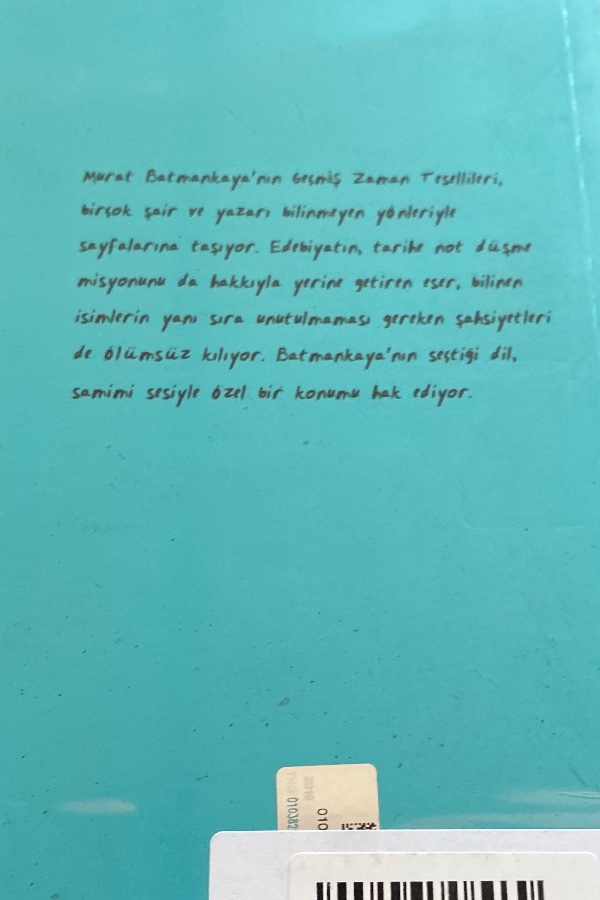 Murat Batmankaya'nın Geçmiş Zaman Tesellileri,
birçok şair ve yazarı bilinmeyen yönleriyle
sayfalarına taşıyor. Edebiyatın, tarihe not düşme
misyonunu da hakkıyla yerine getiren eser, bilinen
isimlerin yanı sıra unutulmaması gereken şahsiyetleri
de ölümsüz kılıyor. Batmankaya'nın seçtiği dil,
samimi sesiyle özel bir konumu hak ediyor.
2016
010382
010